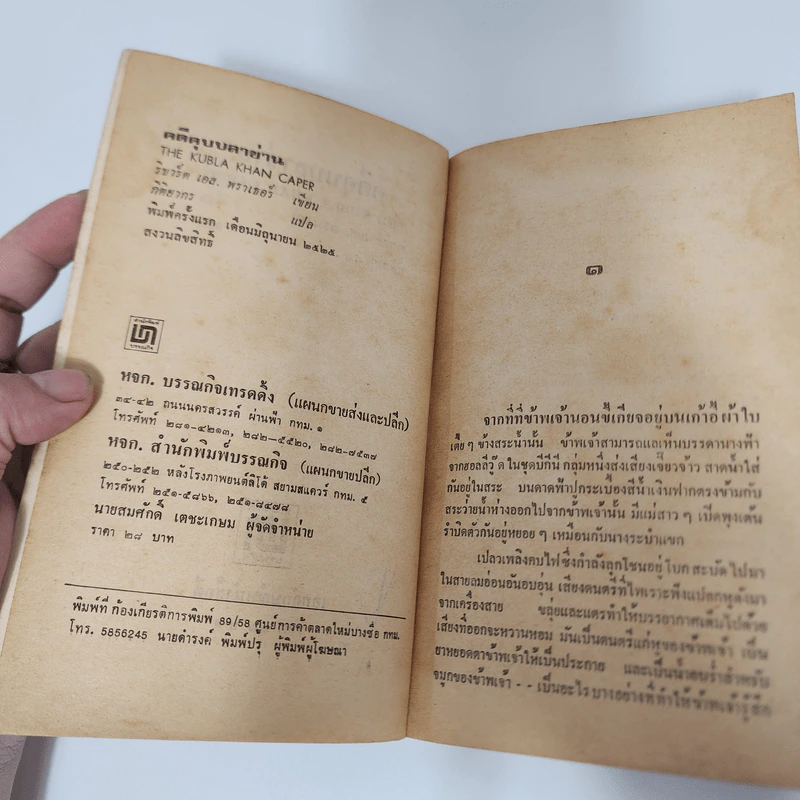 คดีคุบบลาข่าน
THE KUBLA KHAN CAPER
ริชาร์ด เอส. พราเธอร์ เขียน
ภิติยากร แปล
พิมพ์ครั้งแรก เดือนมิถุนายน ๒๕๒๕
สงวนลิขสิทธิ์
หจก. บรรณกิจเทรดดิ้ง (แผนกขายส่งและปลีก)
๓๔-๔๒ ถนนนครสวรรค์ ผ่านฟ้า กทม. ๑
โทรศัพท์ ๒๘๑-๔๒๑๓, ๒๘๒-๕๕๒๐, ๒๘๒-๗๕๓๗
หจก. สำนักพิมพ์บรรณกิจ (แผนกขายปลีก)
๒๕๐-๒๕๒ หลังโรงภาพยนต์ลิโด้ สยามสแควร์ กทม. ๕
โทรศัพท์ ๒๕๑-๕๘๖๖, ๒๕๑-๘๔๗๘
นายสมศักดิ์ เตชะเกษม ผู้จัดจำหน่าย
ราคา ๒๘ บาท
พิมพ์ที่ ก้องเกียรติการพิมพ์ 89/58 ศูนย์การค้าตลาดใหม่บางซื่อ กทม.
โทร. 5856245 นายดำรงค์ พิมพ์ปรุ ผู้พิมพ์ผู้โฆษณา
๑
จากที่ที่ข้าพเจ้านอนซี้เกียจอยู่บนเก้าอี้ผ้าใบ
เตี้ย ๆ ข้างสระน้ำนั้น ข้าพเจ้าสามารถแลเห็นบรรดานางฟ้า
จากฮอลลีวู๊ด ในชุดบีกีนี่ กลุ่มหนึ่งส่งเสียงเจี๊ยวจ๊าว สาดน้ำใส่
กันอยู่ในสระ บนดาดฟ้าปูกระเบื้องสีน้ำเงินฟากตรงข้ามกับ
สระว่ายน้ำห่างออกไปจากข้าพเจ้านั้น มีแม่สาว ๆ เปิดพุงเต้น
รำบิดตัวกันอยู่หยอย ๆ เหมือนกับนางระบำแขก
เปลวเพลิงคบไฟ ซึ่งกำลังลุกโชนอยู่ โบก สะบัด ไปมา
ในสายลมอ่อนอันอบอุ่น เสียงดนตรีที่ไพเราะพึงแปลกหูดังมา
จากเครื่องสาย ขลุ่ยและแตรทำให้บรรยากาศเต็มไปด้วย
เสียงที่ออกจะหวานหอม มันเป็นดนตรีแก่หูของข้าพเจ้า เป็น
ยาหยอดตาข้าพเจ้าให้เป็นประกาย และเป็นน้ำอบร่ำสำหรับ
จมูกของข้าพเจ้า - - เป็นอะไร บางอย่างที่ทำให้ข้าพเจ้ารู้สึก